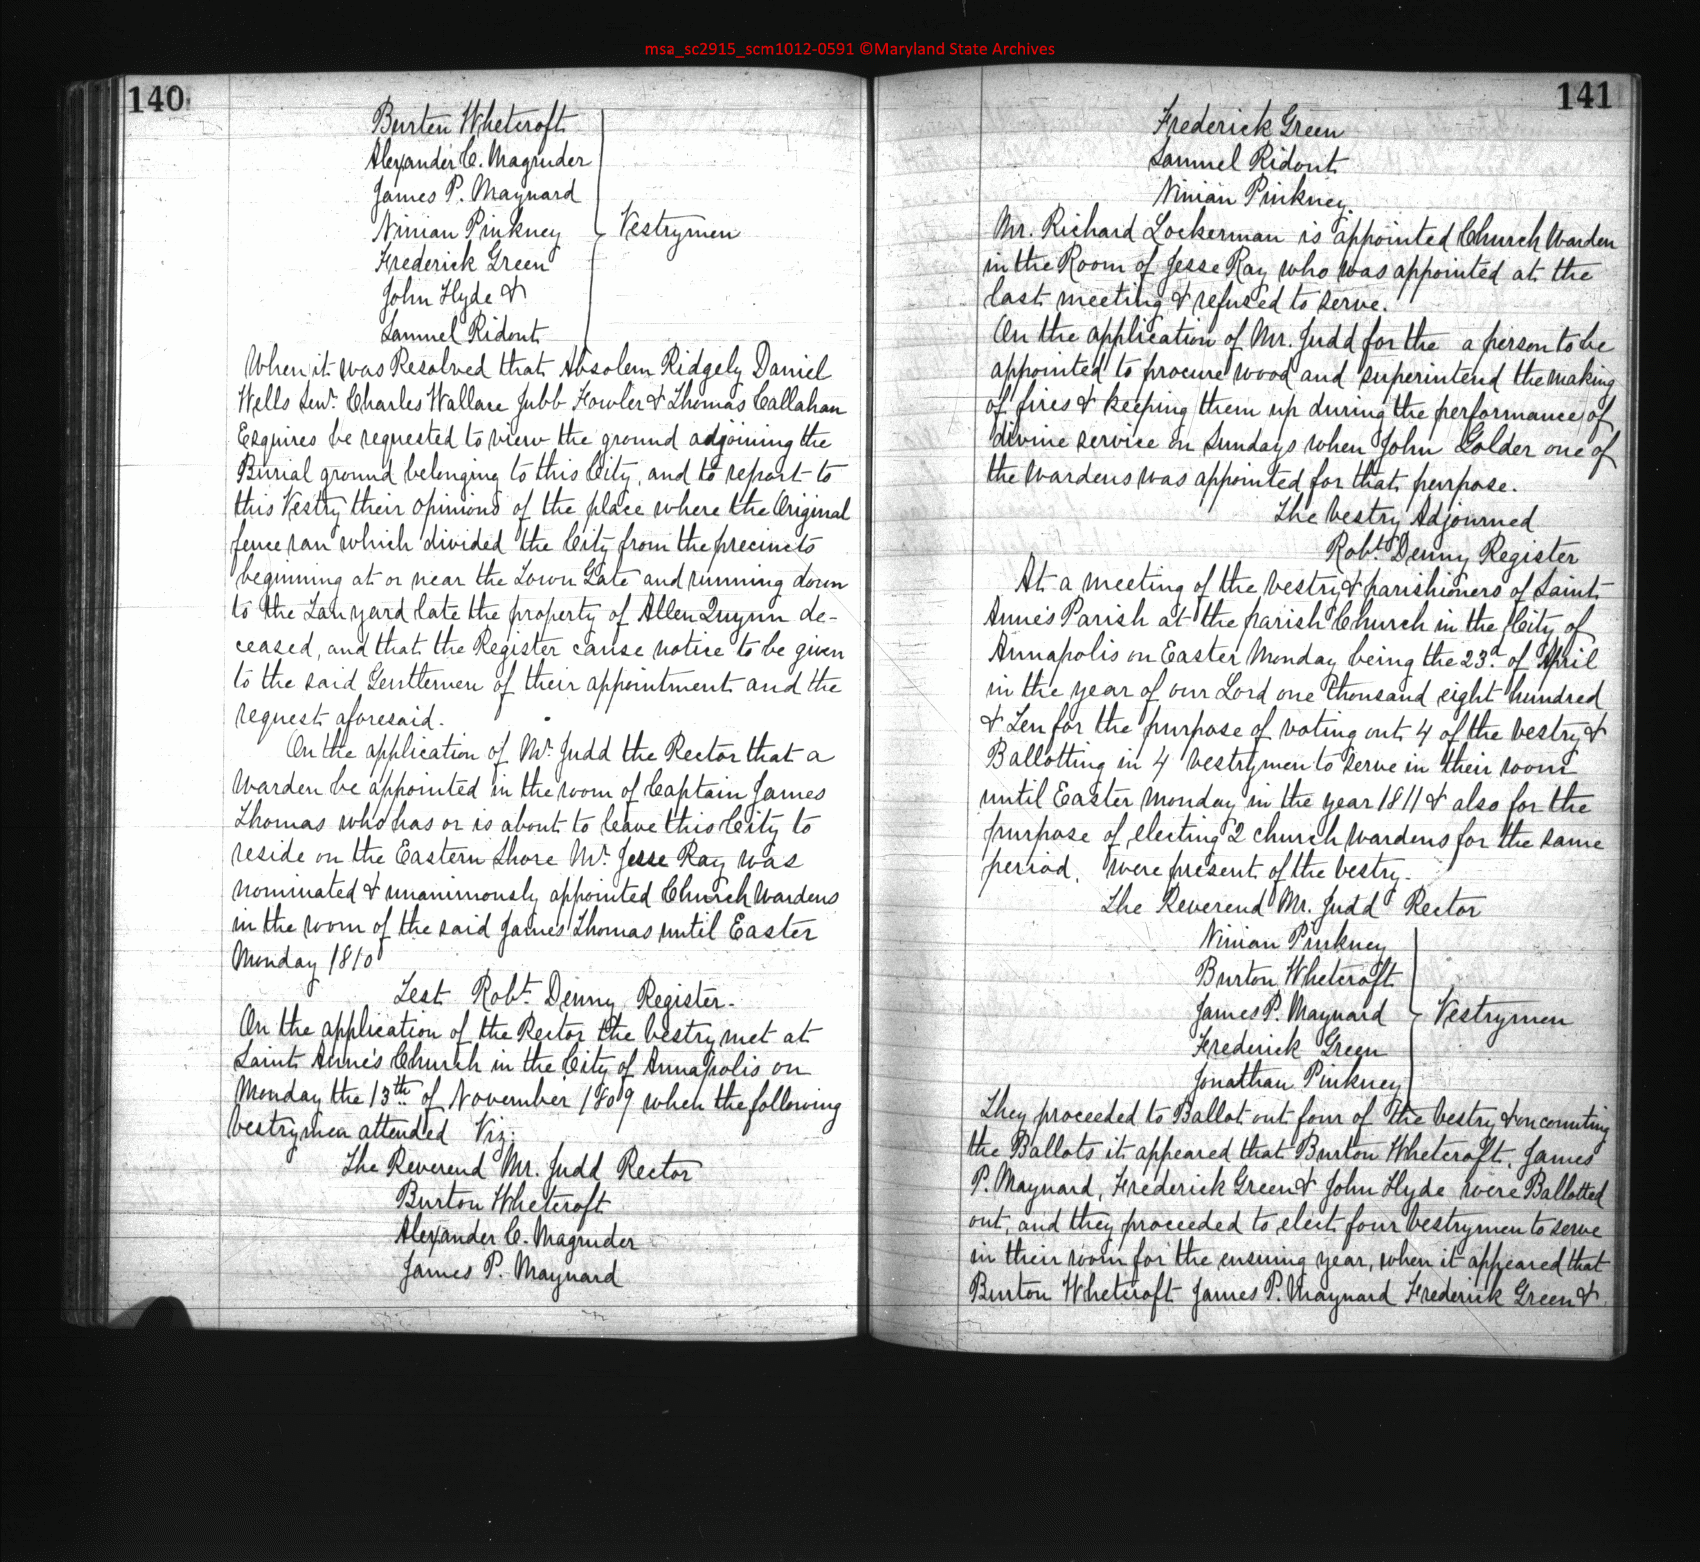 msa_sc2915_scm1012-0591 ©Maryland State Archives
140
Burton Whetcroft
Alexander C. Magruder
James P. Maynard
Ninian Pinkney
Vestrymen
Frederick Green
John Hyde &
Samuel Ridout
When it was Resolved that Absolem Ridgely Daniel
Wells Senr. Charles Wallace Jubb Fowler & Thomas Callahan
Esquires be requested to view the ground adjoining the
Burial ground belonging to this City, and to report to
this Vestry their opinions of the place where the Original
fence ran which divided the City from the precincts
beginning at or near the Town Gate and running down
to the Tanyard late the property of Allen Quynn de-
ceased, and that the Register cause notice to be given
to the said Gentlemen of their appointment and the
request aforesaid.
On the application of Mr. Judd the Rector that a
Warden be appointed in the room of Captain James
Thomas who has or is about to leave this City to
reside on the Eastern Shore Mr. Jesse Ray was
nominated & unanimously appointed Church Wardens
in the room of the said James Thomas until Easter
Monday 1810
Test Robt. Denny Register.
On the application of the Rector the Vestry met at
Saint Anne's Church in the City of Annapolis on
Monday the 13th of November 1809 when the following
Vestrymen attended Viz:
The Reverend Mr. Judd Rector
Burton Whetcroft
Alexander C. Magruder
James P. Maynard
141
Frederick Green
Samuel Ridout
Ninian Pinkney.
Mr. Richard Lockerman is appointed Church Warden
in the Room of Jesse Ray who was appointed at the
last meeting & refused to serve.
On the application of Mr. Judd for the a person to be
appointed to procure wood and superintend the making
of fires & keeping them up during the performance of
divine service on Sundays when John Golder one of
the Wardens was appointed for that purpose.
The Vestry Adjourned
Robt. Denny Register
At a meeting of the vestry & parishioners of Saint
Anne's Parish at the parish Church in the City of
Annapolis on Easter Monday being the 23d. of April
in the year of our Lord one thousand eight hundred
& Ten for the purpose of voting out 4 of the vestry &
Ballotting in 4 vestrymen to serve in their room
until Easter Monday in the year 1811 & also for the
purpose of electing 2 church Wardens for the same
period. were present of the vestry.
The Reverend Mr. Judd Rector
Ninian Pinkney
Burton Whetcroft
James P. Maynard
Vestrymen
Frederick Green
Jonathan Pinkney
They proceeded to Ballot out four of the vestry & on counting
the Ballots it appeared that Burton Whetcroft, James
P. Maynard, Frederick Green & John Hyde were Ballotted
out, and they proceeded to elect four vestrymen to serve
in their room for the ensuing year, when it appeared that
Burton Whetcroft James P. Maynard Frederick Green &